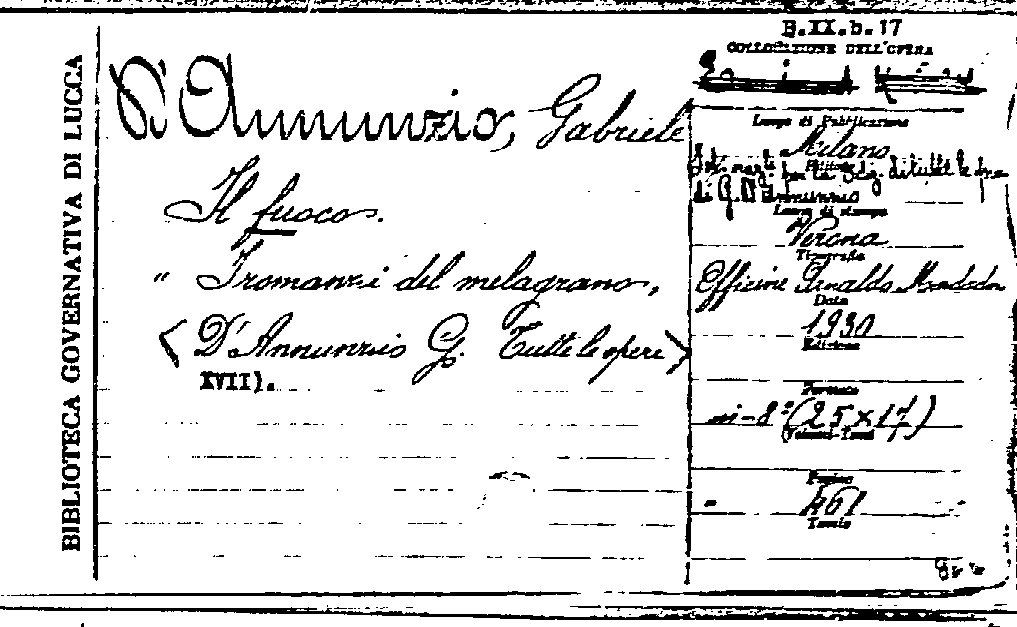 BIBLIOTECA GOVERNATIVA DI LUCCA
D'Annunzio, Gabriele
Il fuoco.
" I romanzi del melagrano,
(D'Annunzio G. Tutte le opere
XVII).
B.II.b.17
COLLOCAZIONE DELL'OPERA
Luogo di Pubblicazione
Milano
Ist. naz. per la Ediz. di tutte le opere
di G. D'Annunzio
Luogo di stampa
Verona
Tipografia
Officine Arnaldo Mondadori
Data
1930
Edizione
Formato
in-8° (25x17)
(Volumi-Tomi
Pagine
461
Tavole